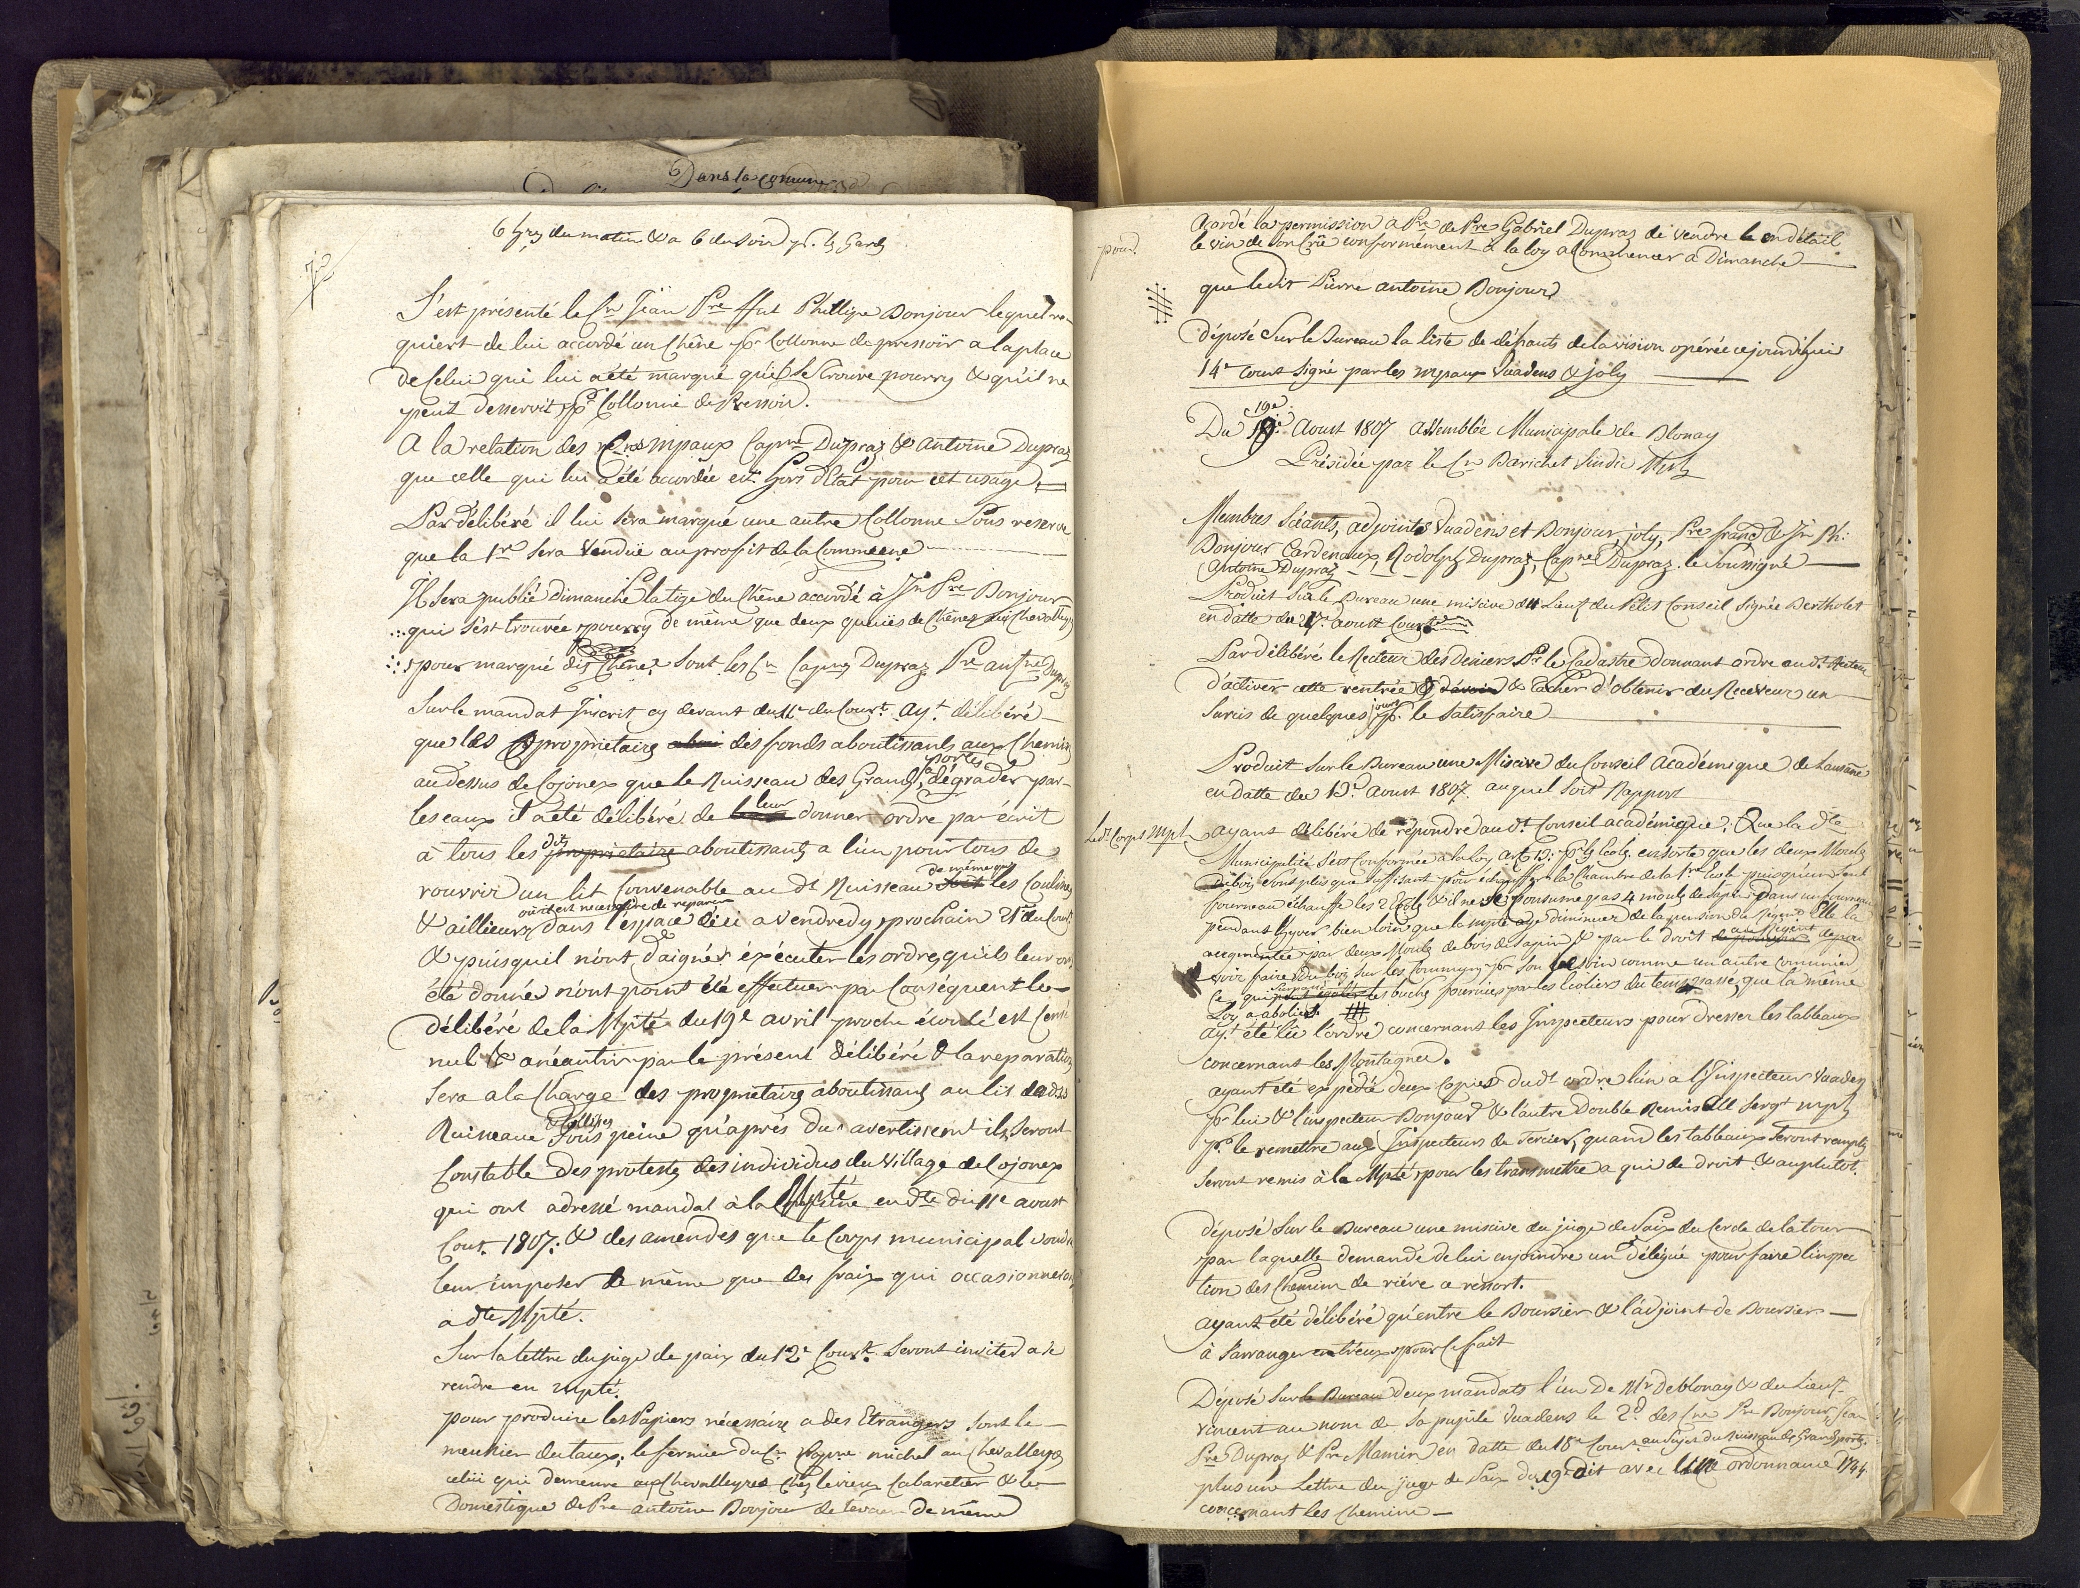 Dans la comune
6 hres du matin & a 6 du soir pr. les Gards
S'est présenté le Cn Jean Pre ffut Phillipe Bonjour lequel re-
quiert de lui accordé un Chêne pr Collonne de pressoir a la place
de Celui qui lui a été marqué qu'il se trouve pourry & qu'il ne
peut desservir pr Collonne de Pressoir.
A la relation des mpaux Capne Dupraz & Antoine Dupraz
que celle qui lui a été accordée est hors d'Etat pour cet usage
Par délibéré il lui sera marqué une autre Collonne Sous reserve
que la 1re sera Vendüe au profit de la Commune
Il sera publié dimanche la tige du Chêne accordé à Jn Pre Bonjour
qui s'est trouvée pourry de même que deux queües de Chênes
pour marqué dis Chênes sont les Cn Capne Dupraz Pre antne Dupraz
Sur le mandat Inscrit cy devant du 11e du Court. ayt. délibéré
que les propriétaires des fonds aboutissants aux Chemin
portes
au dessus de Cojonex que le Ruisseau des Grands a dégrader par
les eaux il a été délibéré de leur donner ordre par ecrit
à tous les dits propriétaires aboutissants a l'un pour tous de
rouvrir un lit Convenable au dt Ruisseau de même que les Coulines
ou il est necessaire de reparer
& ailleurs dans l'espace d'ici a Vendredy prochain 21e du Court
& puisquil n'ont daignés éxécuter les ordres qu'ils leur on
été donnés n'ont point été effectuer par Conséquent le
délibéré de la Mpté du 19e avril proche écoulé est Censé
nul & anéantir par le présent délibéré & la reparation
sera a la Charge des propriétaires aboutissants au lit dudit
Ruisseau & Collises sous peine qu'après du avertissemt ils seront
Constable des protestes des individus du Village de Cojonex
qui ont adressé mandat à la Mpté en dte du 11e aoust
Cout. 1807: & des amendes que le Corps municipal voudra
leur imposer de même que des fraix qui occasionneront
a dte Mpté.
Sur la lettre du juge de paix du 12e Court. Seront invitéd a se
rendre en mpté.
pour produire les Papiers nécessaire a des Etrangers sont le
meunier du taux, le fermier du Cn Capne michel au Chevalleyres
celui qui demeure aux Chevalleyres Chez le vieux Cabaretier & le
Domestique de Pre antoine Bonjour de même
pour
accordé la permission a Pre de Pre Gabriel Dupraz de vendre le en détail
le vin de son Crü conformément à la loy a Commencer a Dimanche
que ledit Pierre Antoine Bonjour
déposé sur le Bureau la liste de défauts de la vision opérée ce jourd'hui
14e court signé par les mpaux Vuadens & joly
Du 19e Aoust 1807 Assemblée Municipale de Blonay
Présidée par le Cn Barichet Sindic
Membres Séants, adjoints Vuadens et Bonjour, joly, Pre frand & Jn Ph:
Bonjour Cardenaux, Rodolph Dupraz, Capne Dupraz. le Soussigné
Antoine Dupraz
Produit sur le Bureau une misive du Lieut du Petit Conseil signée Bertholet
en datte du 17e aoust Court
Par délibéré le Recteur des deniers Pr le Cadastre donnant ordre au dt Recteur
d'activer cette rentrée & tacher d'obtenir du Receveur un
sursis de quelques jours pr. le satisfaire
Produit sur le Bureau une Misive du Conseil Académique de Lausanne
en datte du 13e aoust 1807. auquel soit Rapport
Led. Corps Mpl ayant délibéré de répondre au dt. Conseil académique. Que la dte
Municipalité s'est Conformée a la loy art 13: pr les Ecoles. ensorte que les deux Moules
de bois sont plus que suffisant pour échauffer la Chambre de la 1re Ecole puisqu'un seul
fourneau échauffe les 2 Ecoles & il ne se Consume pas 4 moules de sapin dans un fourneau
pendant l'hyver bien loin que la mpté aye diminuer de la pension du Régent Elle la
augmentée par deux Moules de bois de sapin & par le droit au Régent de pou
voir faire du bois sur les Communs pr son besoin comme un autre Comunier
Ce qui surpasse les buche fournies par les Ecoliers du tems passé, que la même
Loy a abolies.
ayt. été lü l'ordre concernant les Inspecteurs pour dresser les tableaux
concernant les Montagnes.
ayant été expédié deux Copies du dt ordre l'un a l'Inspecteur Vuadens
pr lui & l'inspecteur Bonjour & l'autre Double Remis au Sergt mpl
pr. le remettre aux Inspecteurs de Tercier, quand les tableaux seront remplis
seront remis à la Mpté pour les transmettre a qui de droit & au plutot.
déposé sur le Bureau une misive du juge de Paix du Cercle de la tour
par laquelle demande de lui enjoindre un déléqué pour faire l'inspec
tion des Chemin de riére ce ressort.
ayant été délibéré qu'entre le Boursier & l'adjoint de Boursier
à s'arranger entr'eux pour Ce fait
Déposé sur le Bureau deux mandats l'un de Mr De blonay & du Lieut.
vincent au nom de sa pupile Vuadens le 2d des Cns Pre Bonjour, Jean
Pre Dupraz & Pre Mamin en datte du 18e Court au sujet du ruisseau des Grands portes.
plus une Lettre du juge de Paix du 19e dit avec une ordonnance 1744
concernant les Chemins